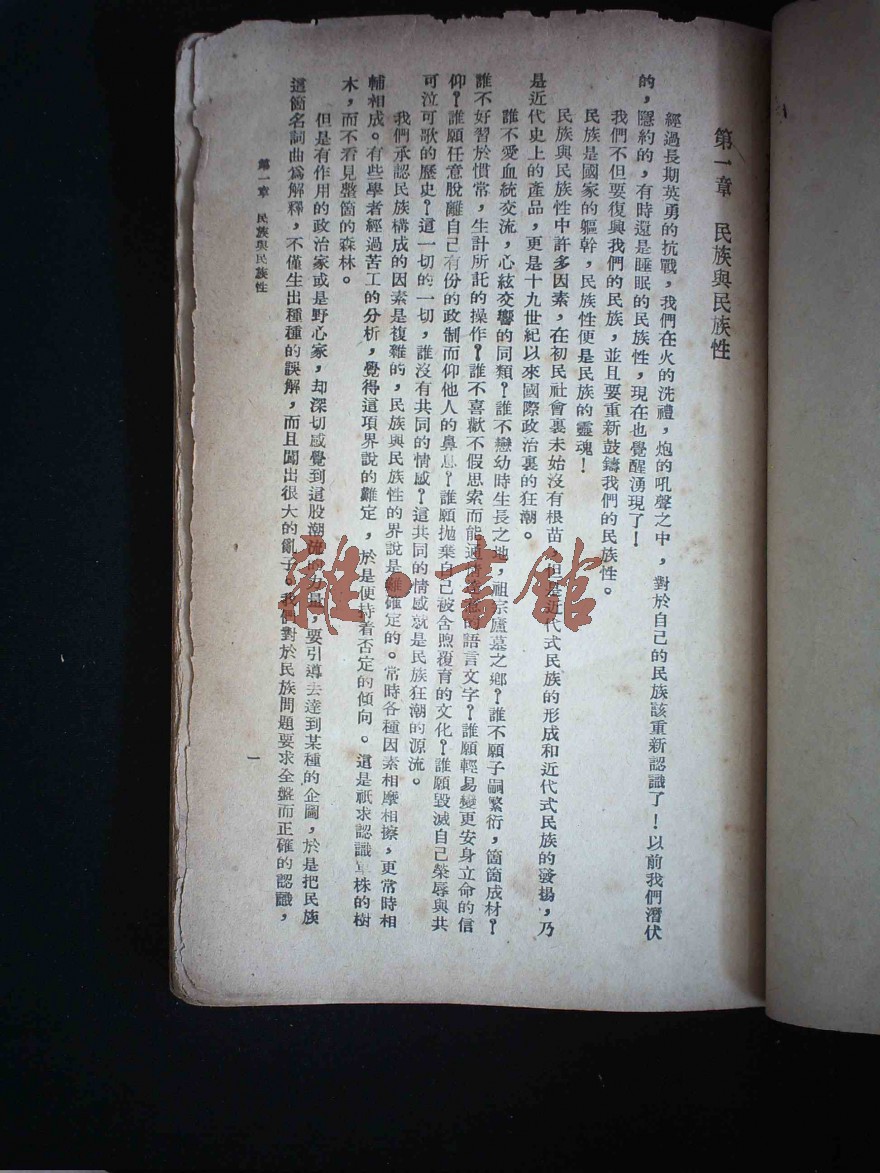 第一章　民族與民族性
經過長期英勇的抗戰，我們在火的洗禮，炮的吼聲之中，對於自己的民族該重新認識了！以前我們潛伏
的，隱約的，有時還是睡眠的民族性，現在也覺醒湧現了！
我們不但要復興我們的民族，並且要重新鼓鑄我們的民族性。
民族是國家的軀幹，民族性便是民族的靈魂！
民族與民族性中許多因素，在初民社會裏未始沒有根苗，但是近代式民族的形成和近代式民族的發揚，乃
是近代史上的產品，更是十九世紀以來國際政治裏的狂潮。
誰不愛血統交流，心絃交響的同類？誰不戀幼時生長之地，祖宗廬墓之鄉？誰不願子嗣繁衍，箇箇成材？
誰不好習於慣常，生計所託的操作？誰不喜歡不假思索而能通的語言文字？誰願輕易變更安身立命的信
仰？誰願任意脫離自己有份的政制而仰他人的鼻息？誰願拋棄自己被含煦覆育的文化？誰願毀滅自己榮辱與共
可泣可歌的歷史？這一切的一切，誰沒有共同的情感？這共同的情感就是民族狂潮的源流。
我們承認民族構成的因素是複雜的，民族與民族性的界說是難確定的。常時各種因素相摩相擦，更常時相
輔相成。有些學者經過苦工的分析，覺得這項界說的難定，於是便持着否定的傾向。這是祇求認識單株的樹
木，而不看見整箇的森林。
但是有作用的政治家或是野心家，却深切感覺到這股潮流的力量，要引導去達到某種的企圖，於是把民族
這箇名詞曲爲解釋，不僅生出種種的誤解，而且闖出很大的亂子。我們對於民族問題要求全盤而正確的認識，
第一章　民族與民族性
一
雜·書館